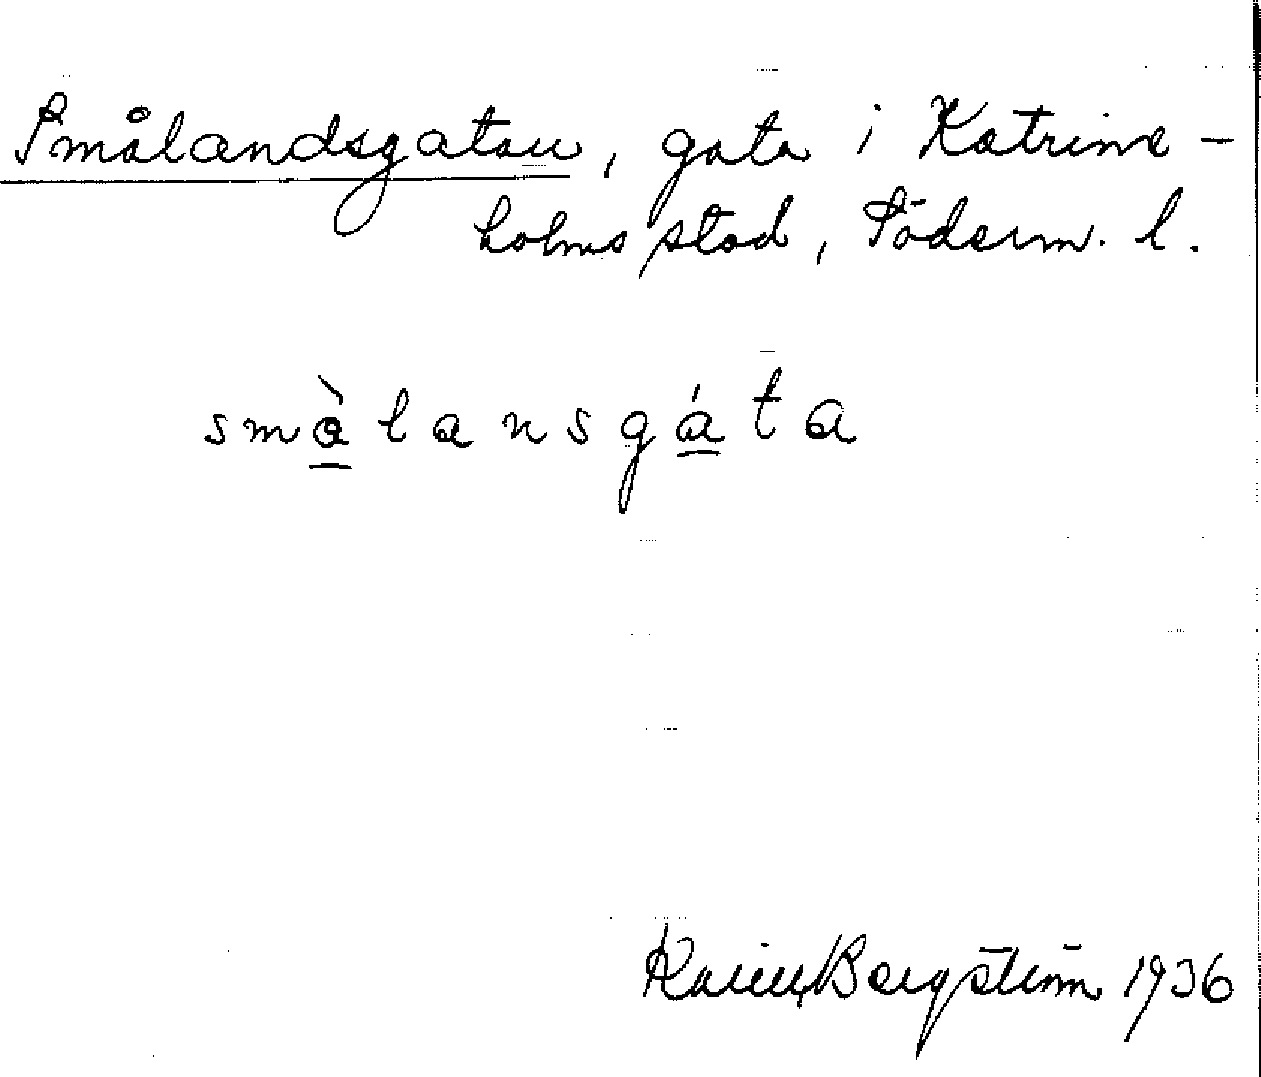 Smålandsgatan, gata i Katrine-
holms stad, Söderm. l.
smàlansgáta
Karin Bergström 1936